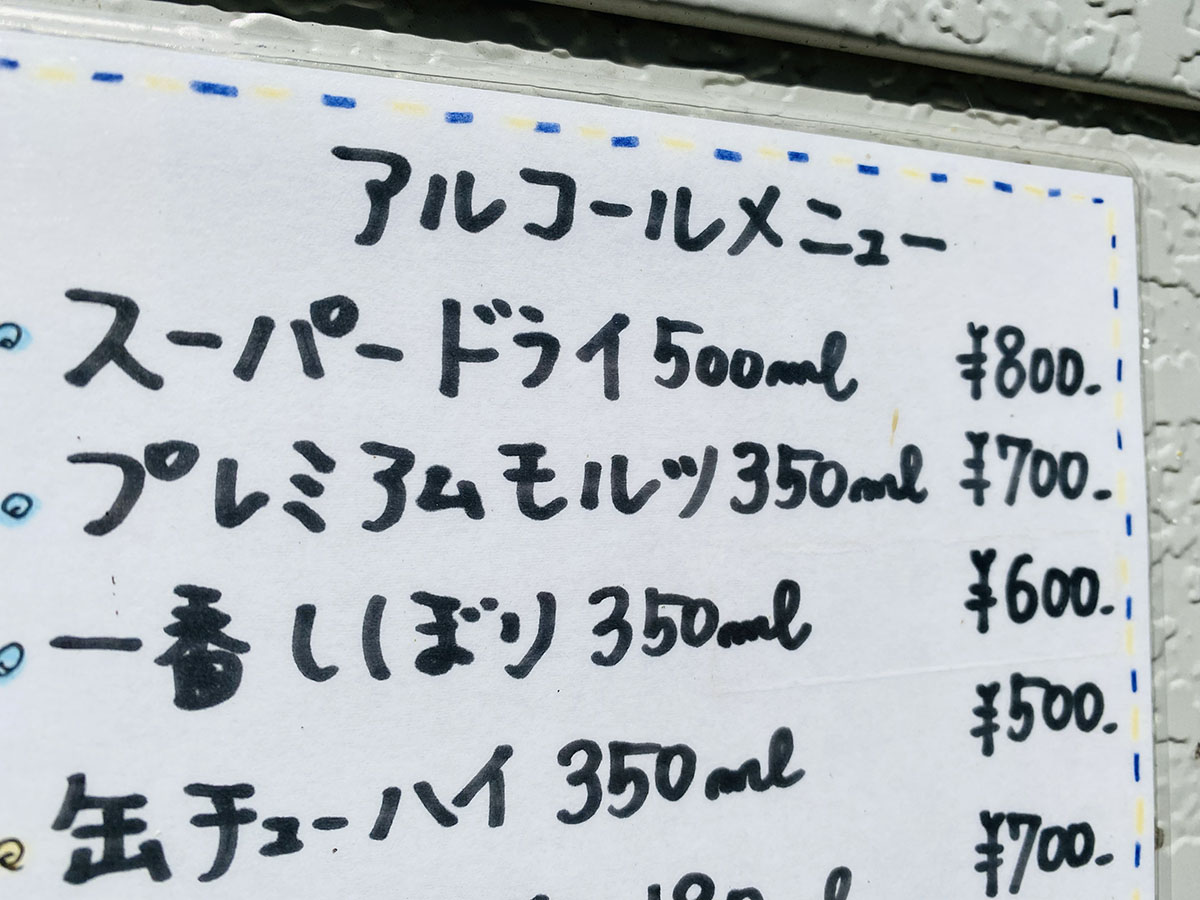 アルコールメニュー
スーパードライ500ml ¥800.-
プレミアムモルツ350ml ¥700.-
一番しぼり 350ml ¥600.-
缶チューハイ 350ml ¥500.-
180ml ¥700.-